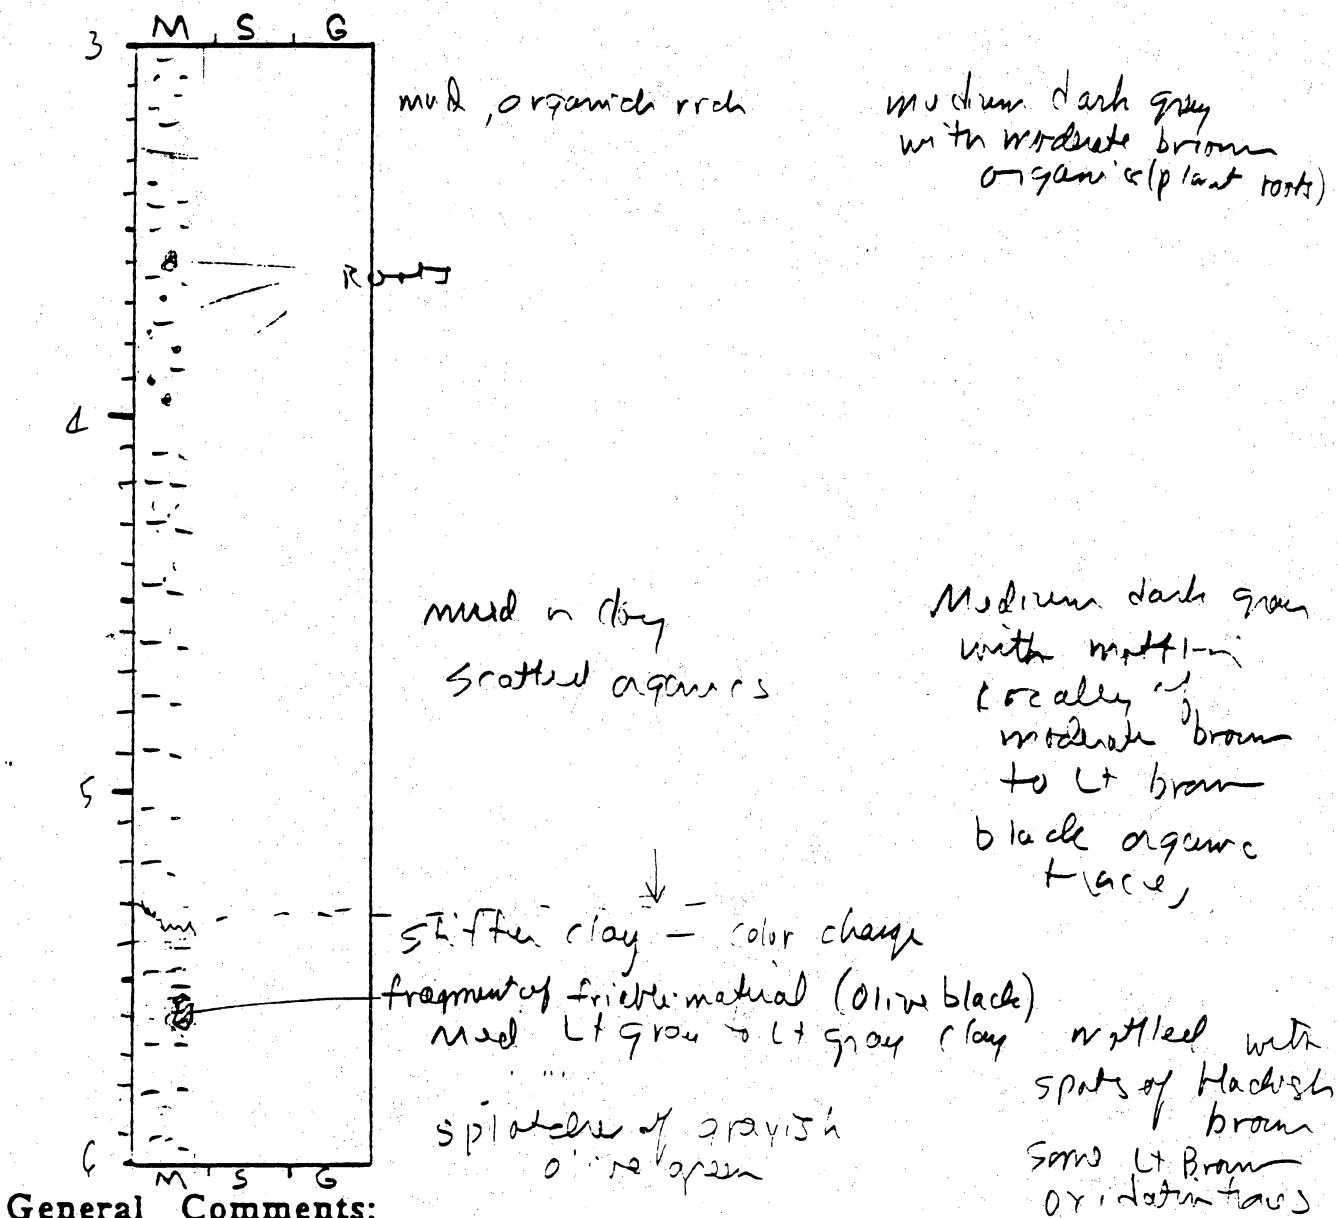 M S G
3
mud, organich rich
medium dark gray
with moderate brown
organics (plant roots)
Roots
4
mud n clay
scattered organics
Medium dark gray
with mottling
locally of
moderate brown
to Lt brown
black organic
traces
5
stiffer clay — color change
fragment of friable material (Olive black)
Med Lt gray to Lt gray clay mottled with
spots of blackish
brown
splotches of grayish
olive green
some Lt Brown
oxidation traces
6
M S G
General Comments: